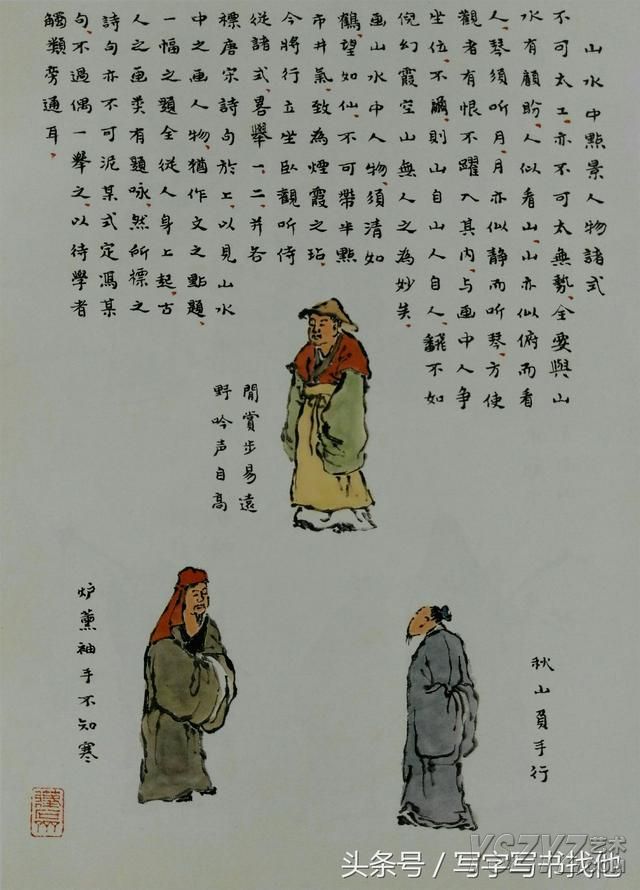 山水中點景人物諸式
不可太工亦不可太無勢全要與山
水有顧盼人似看山山亦似俯而看
人琴須听月月亦似静而听琴方使
觀者有恨不躍入其内与画中人争
坐位不爾則山自山人自人翻不如
倪幻霞空山無人之為妙矣
画山水中人物須清如
鶴望如仙不可帶半點
市井氣致為煙霞之玷
今將行立坐卧觀听侍
從諸式畧舉一二并各
標唐宋詩句於上以見山水
中之画人物猶作文之點題
一幅之題全從人身上起古
人之画类有題咏然所標之
詩句亦不可泥某式定馮某
句不過偶一舉之以待學者
觸類旁通耳
閒賞步易遠
野吟声自高
秋山負手行
炉薰袖手不知寒
头条号／写字写书找他